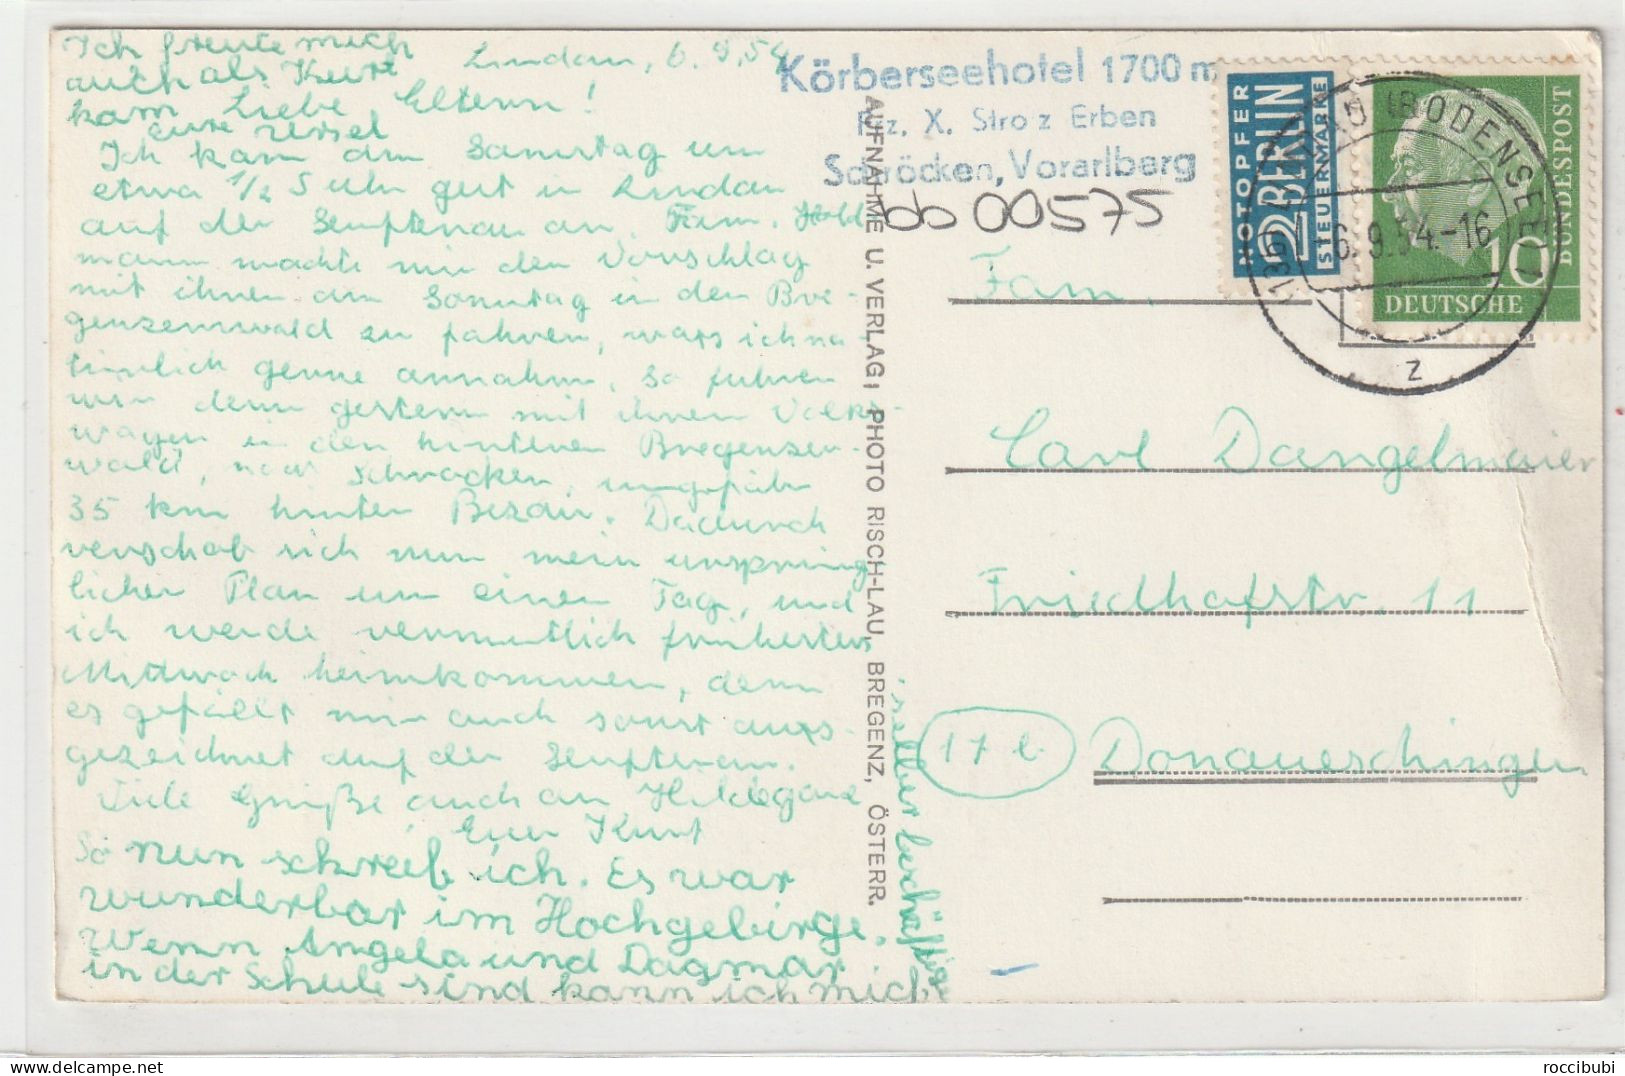 Ich freute mich
auch als Kurt
kam
eure Ursel
Lindau, 6.9.54
Liebe Eltern!
Ich kam am Samstag um
etwa 1/2 5 Uhr gut in Lindau
auf der Senftenau an. Fam. Held
mann machte mir den Vorschlag
mit ihnen am Sonntag in den Bre-
genzerwald zu fahren, was ich na-
türlich gerne annahm. So fuhren
wir denn gestern mit ihrem Volks-
wagen in den hinteren Bregenzer-
wald, nach Schröcken, ungefähr
35 km hinter Bezau. Dadurch
verschob sich nun mein ursprüng
licher Plan um einen Tag, und
ich werde vermutlich frühestens
Mittwoch heimkommen, denn
es gefällt mir auch sonst aus-
gezeichnet auf der Senftenau.
Viele Grüße, auch an Hildegard
Euer Kurt
So nun schreib ich. Es war
wunderbar im Hochgebirge.
Wenn Angela und Dagmar
in der Schule sind kann ich mich
selber beschäftigen
AUFNAHME U. VERLAG: PHOTO RISCH-LAU, BREGENZ, ÖSTERR.
Körberseehotel 1700 m
Bz. X. Stroz Erben
Schröcken, Vorarlberg
bb 00575
NOTOPFER
2 BERLIN
STEUERMARKE
DEUTSCHE
BUNDESPOST
10
(13b) LINDAU (BODENSEE)
-6.9.54.-16
z
Fam.
Carl Dangelmaier
Friedhofstr. 11
17b
Donaueschingen
roccibubi